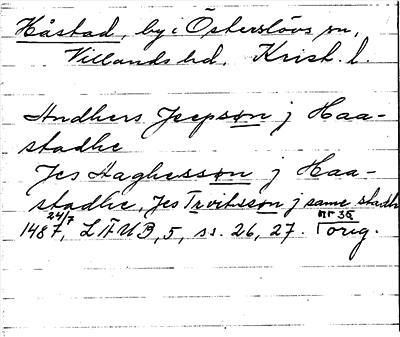 Håstad, by i Österslövs sn,
Villands hd. Krist. l.
Andhers Jeepson j Haa-
stadhe
Jes Haghesson j Haa-
stadhe, Jes Trvitsson j same stadh
24/7 nr 36
1487, LÄUB, 5, ss. 26, 27. orig.